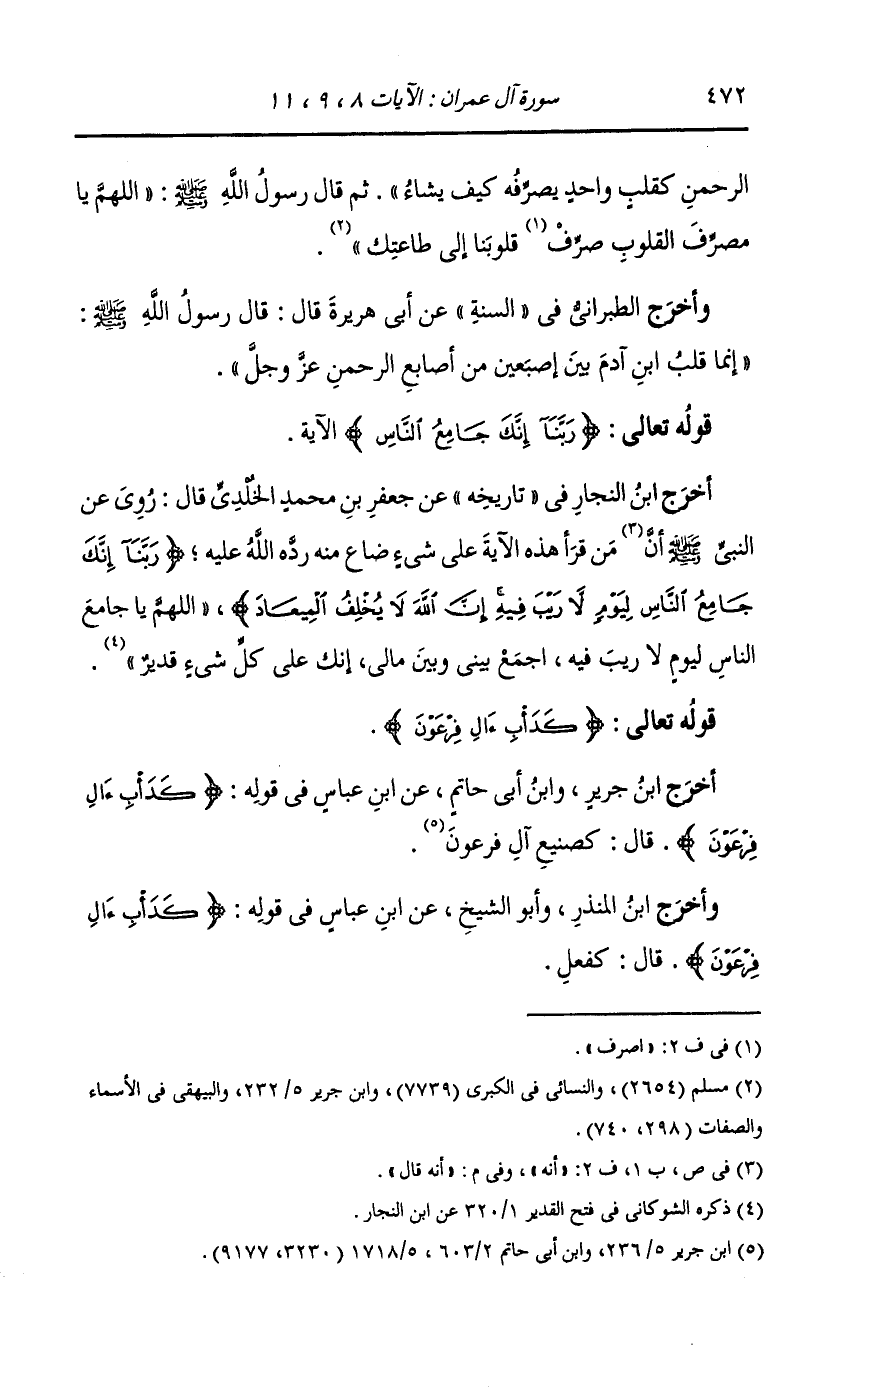 ٤٧٢ سورة آل عمران : الآيات ٨ ، ٩ ، ١١
الرحمنِ كقلبٍ واحدٍ يصرِّفُه كيف يشاءُ» . ثم قال رسولُ اللَّهِ ﷺ : «اللهمَّ يا
مصرِّفَ القلوبِ صرِّفْ(١) قلوبَنا إلى طاعتِك»(٢) .
وأخرَج الطبرانىُّ فى «السنةِ» عن أبى هريرةَ قال : قال رسولُ اللَّهِ ﷺ :
«إنما قلبُ ابنِ آدمَ بينَ إصبَعين من أصابعِ الرحمنِ عزَّ وجلَّ» .
قولُه تعالى : ﴿رَبَّنَآ إِنَّكَ جَامِعُ ٱلنَّاسِ﴾ الآية .
أخرَج ابنُ النجارِ فى «تاريخِه» عن جعفرِ بنِ محمدٍ الخُلْدِىِّ قال : رُوِىَ عن
النبىِّ ﷺ أنَّ(٣) مَن قرَأ هذه الآيةَ على شىءٍ ضاع منه ردَّه اللَّهُ عليه ؛ ﴿رَبَّنَآ إِنَّكَ
جَامِعُ ٱلنَّاسِ لِيَوْمٍ لَّا رَيْبَ فِيهِۚ إِنَّ ٱللَّهَ لَا يُخْلِفُ ٱلْمِيعَادَ﴾ ، «اللهمَّ يا جامعَ
الناسِ ليومٍ لا ريبَ فيه ، اجمَعْ بينى وبينَ مالى، إنك على كلِّ شىءٍ قديرٌ»(٤) .
قولُه تعالى : ﴿كَدَأْبِ ءَالِ فِرْعَوْنَ﴾ .
أخرَج ابنُ جريرٍ ، وابنُ أبى حاتمٍ ، عن ابنِ عباسٍ فى قولِه : ﴿كَدَأْبِ ءَالِ
فِرْعَوْنَ﴾ . قال : كصنيعِ آلِ فرعونَ(٥) .
وأخرَج ابنُ المنذرِ ، وأبو الشيخِ ، عن ابنِ عباسٍ فى قولِه : ﴿كَدَأْبِ ءَالِ
فِرْعَوْنَ﴾ . قال : كفعلِ .
(١) فى ف ٢: «اصرف» .
(٢) مسلم (٢٦٥٤) ، والنسائى فى الكبرى (٧٧٣٩) ، وابن جرير ٥/ ٢٣٢، والبيهقى فى الأسماء
والصفات (٢٩٨، ٧٤٠) .
(٣) فى ص ، ب ١، ف ٢: «أنه» ، وفى م : «أنه قال» .
(٤) ذكره الشوكانى فى فتح القدير ١/ ٣٢٠ عن ابن النجار .
(٥) ابن جرير ٥/ ٢٣٦، وابن أبى حاتم ٢/ ٦٠٣ ، ٥/ ١٧١٨ (٣٢٣٠، ٩١٧٧) .